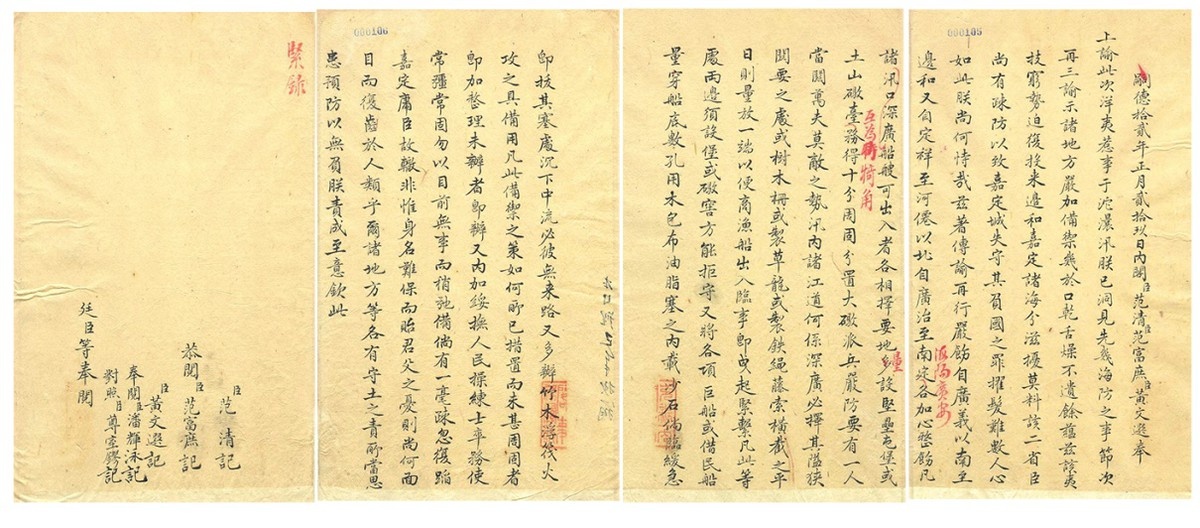 000105
嗣德拾貳年正月貳拾玖日內閣臣范清范富庶臣黃文選奉
上諭此次洋夷惹事于沱㶞汛朕已洞見先幾海防之事節次
再三諭示諸地方嚴加備禦幾於口乾舌燥不遺餘蘊玆該夷
技窮勢迫復挨來邊和嘉定諸海分滋擾莫料該二省臣
尚有疎防以致嘉定城失守其負國之罪擢髮難數人心
如此朕尚何恃哉玆著傳諭再行嚴飭自廣義以南至
邊和又自定祥至河僊以北自廣治至南定海陽廣安各加心整飭凡
諸汛口深廣船艘可出入者各相擇要地多量設堅壘屯堡或
土山礮臺互為犄角務得十分周固分置大礮派兵嚴防要有一人
當關萬夫莫敵之勢汛內諸江道何係深廣必擇其隘狹
關要之處或樹木柵或製草龍或製鉄繩藤索橫截之平
日則量放一端以便商漁船出入臨事即曳起緊繫凡此等
處兩邊須設堡或礮窖方能拒守又將各項巨船或借民船
量穿船底數孔用木包布油脂塞之內載沙石倘臨緩急
000106
即拔其塞處沉下中流必彼無來路又多辦竹木浮筏火
攻之具備用凡此備禦之策如何所已措置而未甚周周者
即加整理未辦者即辦又內加綏撫人民操練士卒務使
常彊常固勿以目前無事而稍弛備倘有一毫疎忽復蹈
嘉定庸臣故轍非惟身名難保而貽君父之憂則尚何面
目而復齒於人類乎爾諸地方等各有守土之責所當思
患預防以無負朕責成至意欽此
緊錄
臣范清記
恭閱臣范富庶記
臣黃文選記
奉閱臣潘輝泳記
對照臣尊室鏐記
廷臣等奉閱